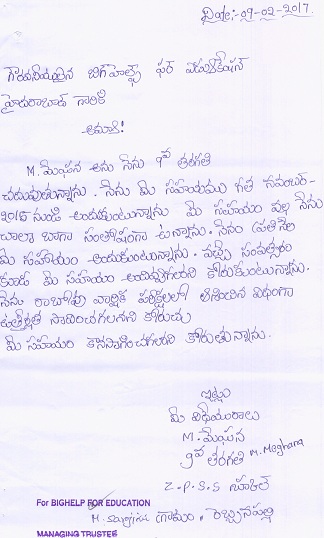 Date:- 09-02-2017.
గౌరవనీయులైన బిగ్‌హెల్ప్ ఫర్ ఎడ్యుకేషన్
హైదరాబాద్ గారికి
అమ్మా!
M. మేఘన అను నేను 9వ తరగతి
చదువుతున్నాను. నేను మీ సహాయము గత నవంబర్-
2015 నుండి అందుకుంటున్నాను మీ సహాయం వల్ల నేను
చాలా బాగా సంతోషంగా ఉన్నాను. నేను ప్రతినెల
మీ సహాయం అందుకుంటున్నాను. వచ్చే సంవత్సరం
కూడా మీ సహాయం అందివ్వగలరని కోరుకుంటున్నాను.
నేను రాబోవు వార్షిక పరీక్షలలో ఆశించిన విధంగా
ఉత్తీర్ణత సాధించగలనని కోరుచు
మీ సహాయం కొనసాగించగలరని కోరుతున్నాను.
ఇట్లు
మీ విధేయురాలు
M. మేఘన
9వ తరగతి M. Meghana
Z.P.S.S
గ్రామం. రెబ్బనపల్లి
For BIGHELP FOR EDUCATION
MANAGING TRUSTEE